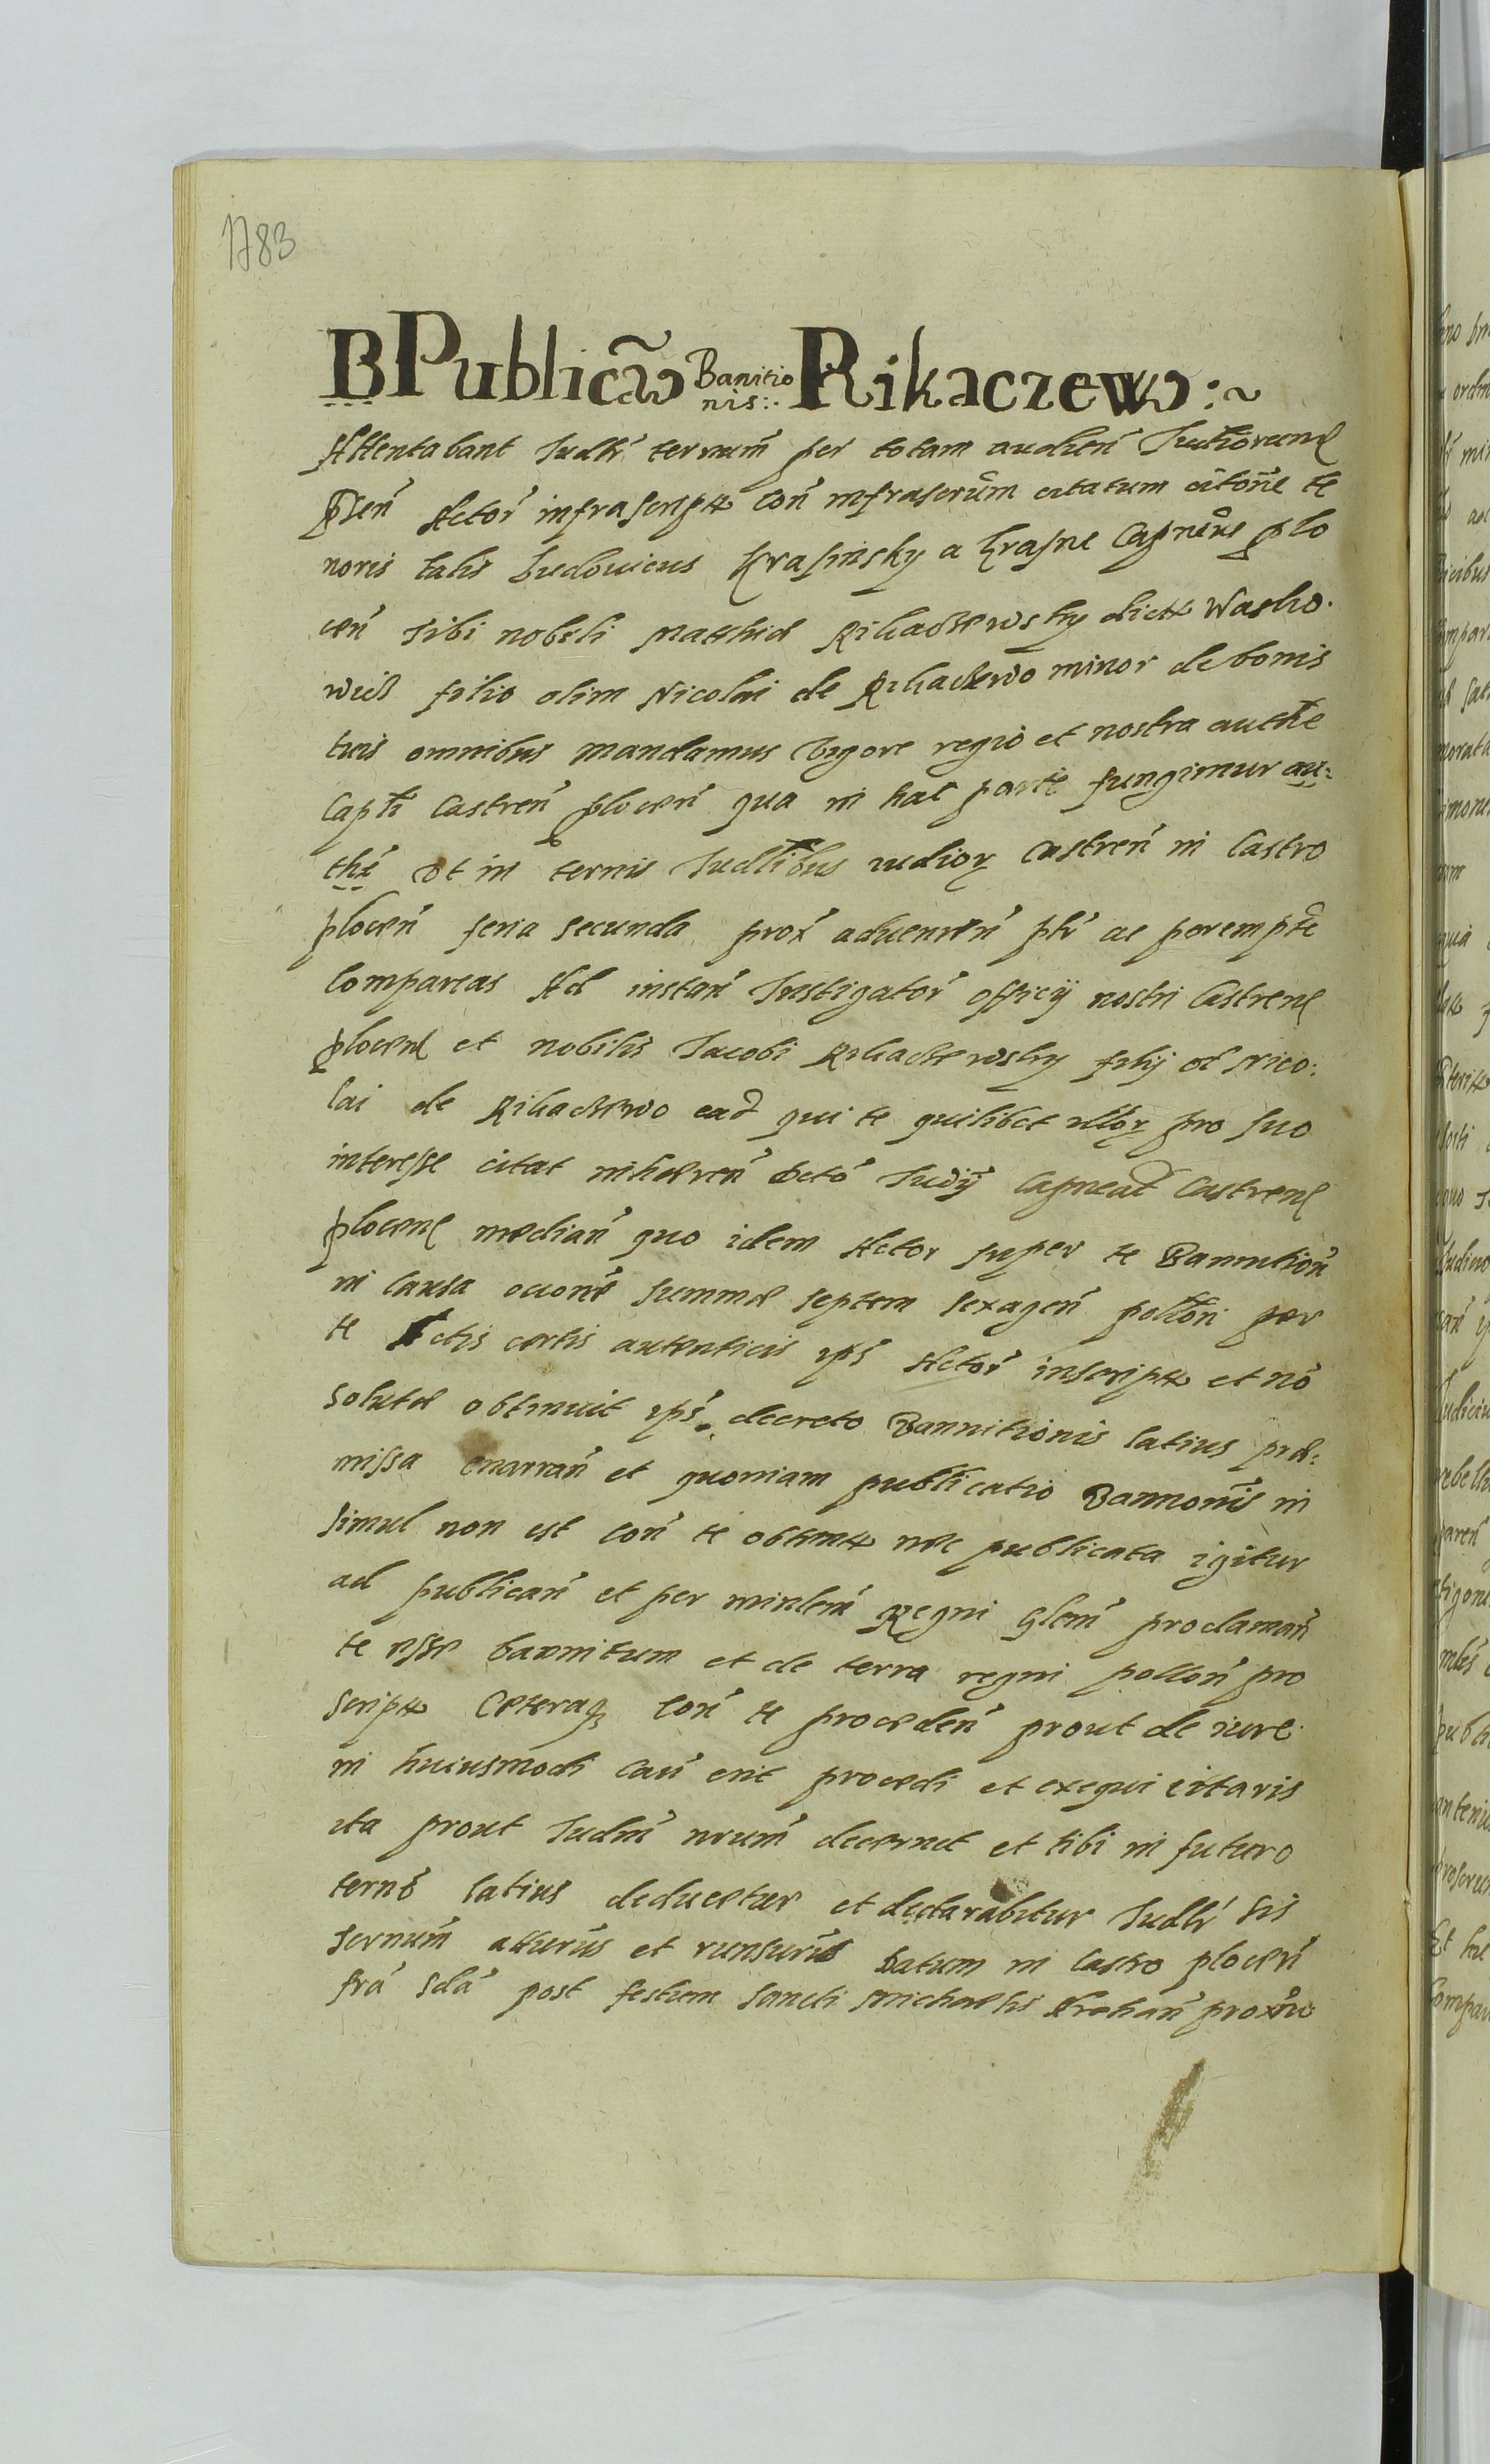 1783
B Publicão Banitio
nis:. Rikaczewo:~
Attentabant Judlr ternum per totam audien Judiorum
psen Actor infrascript con infrascrum citatum citone te
noris talis Ludovicus Krasinsky a Krasne Capneus plo
cen Tibi nobili Matthiæ Rikaczewsky dict Wasko.
wicz filio olim Nicolai de Rikaczewo minor de bonis
tuis omnibus mandamus vigore regio et nostra authe
Capti Castren plocen qua in hac parte fungimur au:
the Vt in ternis Judlibus iudior Castren in Castro
plocen feria secunda prox advenien plr ac perempte
Compareas Ad instan Instigator officij nostri Castren
plocen et nobilis Jacobi Rikaczewsky filij ol Nico:
lai de Rikaczewo ead qui te quilibet illor pro suo
interesse citat inhæren Dcto Judij Capneat Castren
plocen median quo idem Actor super te Bannition
in causa occione summæ septem sexagen pollon per
te Actis certis autenticis ips Actor inscript et nõ
solutæ obtinuit ips decreto Bannitionis latius præ:
missa enarran et quoniam publicatio Bannonis in
simul non est con te obtent nec publicata igitur
ad publican et per minlem Regni Glem proclaman
te esse bannitum et de terra regni pollon pro
script Ceteraq con te proceden prout de iure
in huiusmodi cau erit procedi et exequi citaris
ita prout Judm nrum decernet et tibi in futuro
terno latius deducetur et declarabitur Judlr sis
ternum atturus et runsurus Datum in Castro plocen
fra scla post festum Sancti Michaelis Archan proxio